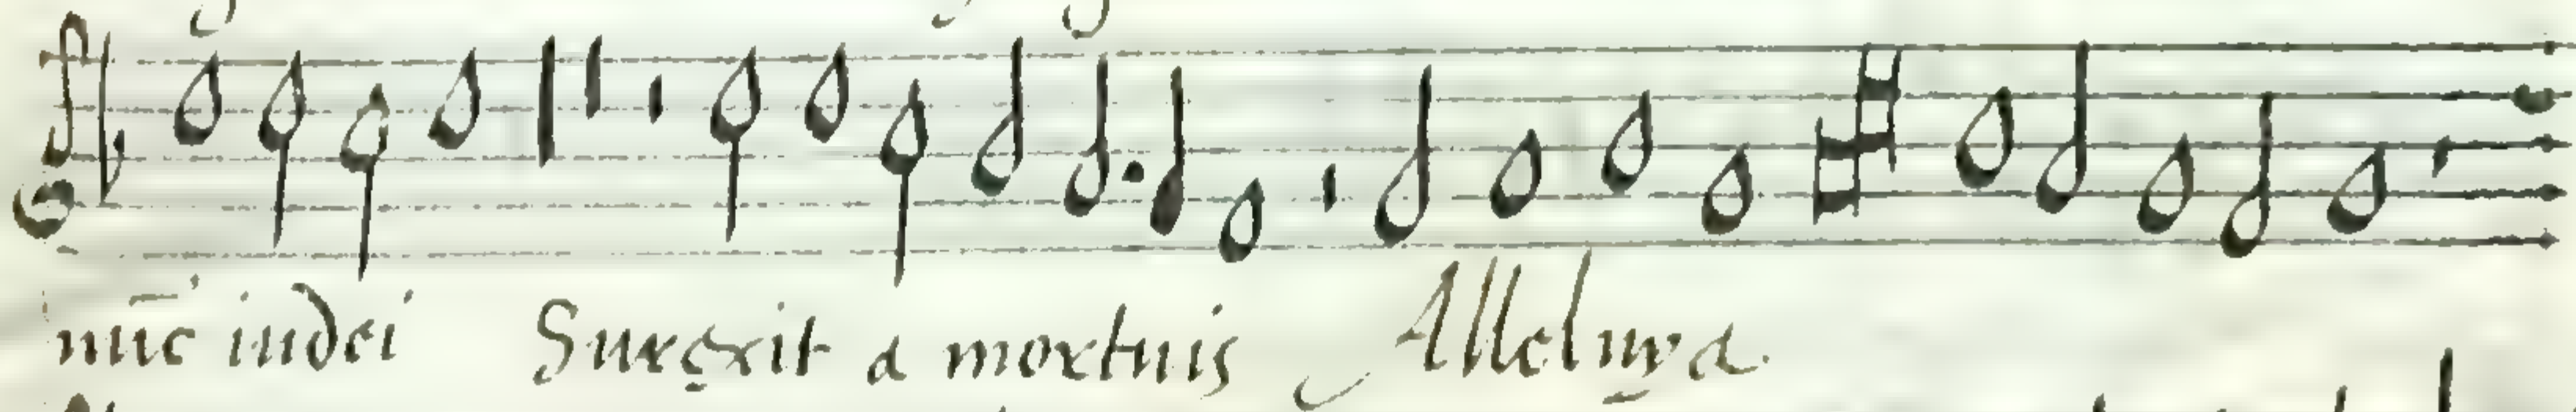 nūc iudei Surrexit a mortuis Alleluya.